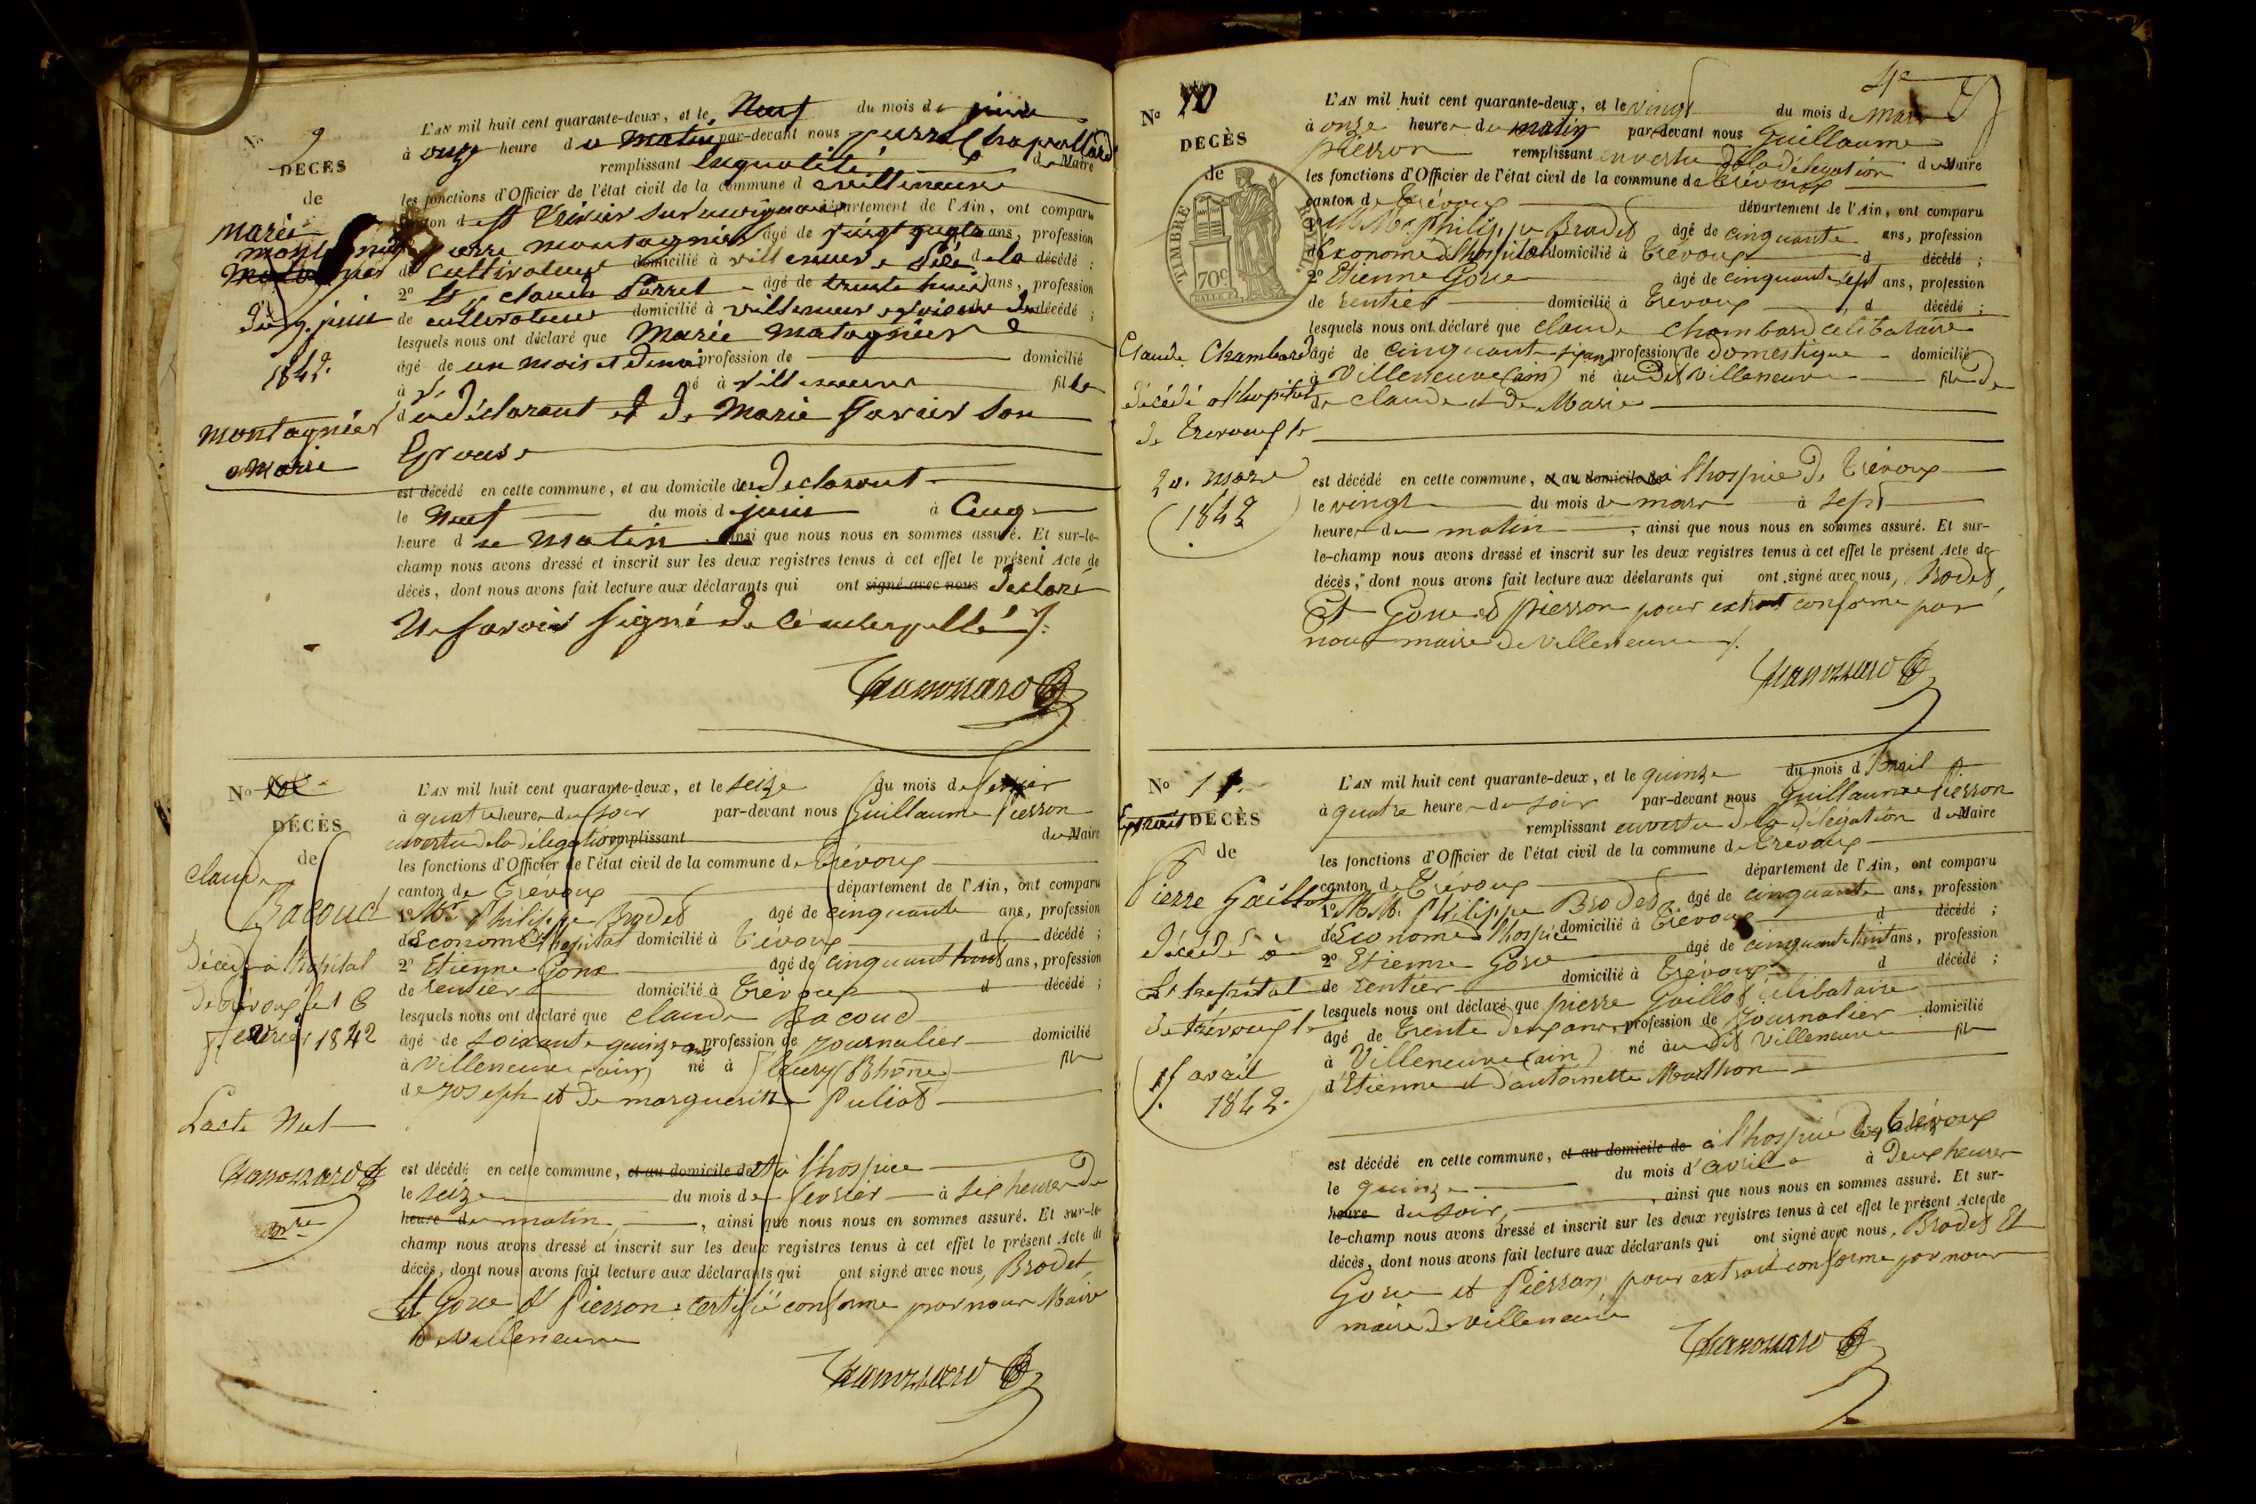 N° 9
DÉCÈS
de
Marie
Montagnier
Du 9. juin
1842.
Montagnier
Marie
L'AN mil huit cent quarante-deux, et le Neuf du mois de juin
à onze heure du Matin par-devant nous pierre
remplissant de Maire
les fonctions d'Officier de l'état civil de la commune d villeneuve
canton de St Trivier sur département de l'Ain, ont comparu
pierre montagnier âgé de vingt ans, profession
de cultivateur domicilié à villeneuve décédé ;
2° claude Perret âgé de trente trois ans, profession
de cultivateur domicilié à villeneuve décédé ;
lesquels nous ont déclaré que Marie Matagnier
âgé de un mois et demi profession de domicilié
à né à villeneuve fille
du déclarant et de Marie son
Epouse
est décédé en cette commune, et au domicile du declarant
le Neuf du mois de juin à Cinq
heure du Matin ainsi que nous nous en sommes assuré. Et sur-le-
champ nous avons dressé et inscrit sur les deux registres tenus à cet effet le présent Acte de
décès, dont nous avons fait lecture aux déclarants qui ont signé avec nous déclaré
Ne savoir signé de ce interpellé
N°
DÉCÈS
de
claude
Bacoud
Décédé à l'hopital
de trévoux le 16
fevrier 1842
L'acte Nul
mre
L'AN mil huit cent quarante-deux, et le seize du mois de fevrier
à quatre heures du soir par-devant nous Guillaume Pierson
en vertu de la délégation remplissant du Maire
les fonctions d'Officier de l'état civil de la commune de Trévoux
canton de Trévoux département de l'Ain, ont comparu
1° Mr Philippe Brodet âgé de cinquante ans, profession
d'Econome de l'hopital domicilié à Trévoux d décédé ;
2° Etienne Goux âgé de cinquante huit ans, profession
de rentier domicilié à Trévoux d décédé ;
lesquels nous ont déclaré que claude Bacoud
âgé de soixante quinze ans profession de journalier domicilié
à Villeneuve (ain) né à fleury (Rhône) fils
de joseph et de marguerite Puliot
est décédé en cette commune, et au domicile de et à l'hospice
le seize du mois de fevrier à six heures du
heure du matin, ainsi que nous nous en sommes assuré. Et sur-le-
champ nous avons dressé et inscrit sur les deux registres tenus à cet effet le présent Acte de
décès, dont nous avons fait lecture aux déclarants qui ont signé avec nous, Brodet
Et Goux et Pierson : certifié conforme par nous Maire
de villeneuve
4e
N° 10
DÉCÈS
de
TIMBRE ROYAL
70c
Claude Chambard
décédé à l'hopital
de Trevoux le
20. mars
1842
L'AN mil huit cent quarante-deux, et le vingt du mois de mars
à onze heures du matin par-devant nous Guillaume
pierson remplissant en vertu de la délégation du Maire
les fonctions d'Officier de l'état civil de la commune de trévoux
canton de Trévoux département de l'Ain, ont comparu
1° M Mr philippe Brodet âgé de cinquante ans, profession
d'Econome de l'hospice domicilié à Trévoux d décédé ;
2° Etienne Goux âgé de cinquante sept ans, profession
de rentier domicilié à trevoux d décédé ;
lesquels nous ont déclaré que claude chambard célibataire
âgé de cinquante six ans profession de domestique domicilié
à Villeneuve (ain) né au dit villeneuve fils de
de claude et de Marie
est décédé en cette commune, et au domicile de à l'hospice de trévoux
le vingt du mois de mars à sept
heures du matin, ainsi que nous nous en sommes assuré. Et sur-
le-champ nous avons dressé et inscrit sur les deux registres tenus à cet effet le présent Acte de
décès, dont nous avons fait lecture aux déclarants qui ont signé avec nous, Brodet,
Et Goux et pierson pour extrait conforme par
nous maire de villeneuve
N° 11.
DÉCÈS
de
Pierre Gaillot
décédé à
L'hopital
de trévoux le
15 avril
1842.
L'AN mil huit cent quarante-deux, et le quinze du mois d'Avril
à quatre heures du soir par-devant nous Guillaume Pierson
remplissant en vertu de la délégation du Maire
les fonctions d'Officier de l'état civil de la commune de trevoux
canton de Trévoux département de l'Ain, ont comparu
1° M Mr Philippe Brodet âgé de cinquante ans, profession
d'Econome de l'hospice domicilié à Trévoux d décédé ;
2° Etienne Goux âgé de cinquante huit ans, profession
de rentier domicilié à Trévoux d décédé ;
lesquels nous ont déclaré que pierre Gaillot célibataire
âgé de trente deux ans profession de journalier domicilié
à Villeneuve (ain) né au dit villeneuve fils
d'Etienne et d'antoinette Mathon
est décédé en cette commune, et au domicile de à l'hospice de trévoux
le quinze du mois d'avril à deux heures
heure du soir, ainsi que nous nous en sommes assuré. Et sur-
le-champ nous avons dressé et inscrit sur les deux registres tenus à cet effet le présent Acte de
décès, dont nous avons fait lecture aux déclarants qui ont signé avec nous, Brodet Et
Goux et Pierson, pour extrait conforme par nous
maire de villeneuve